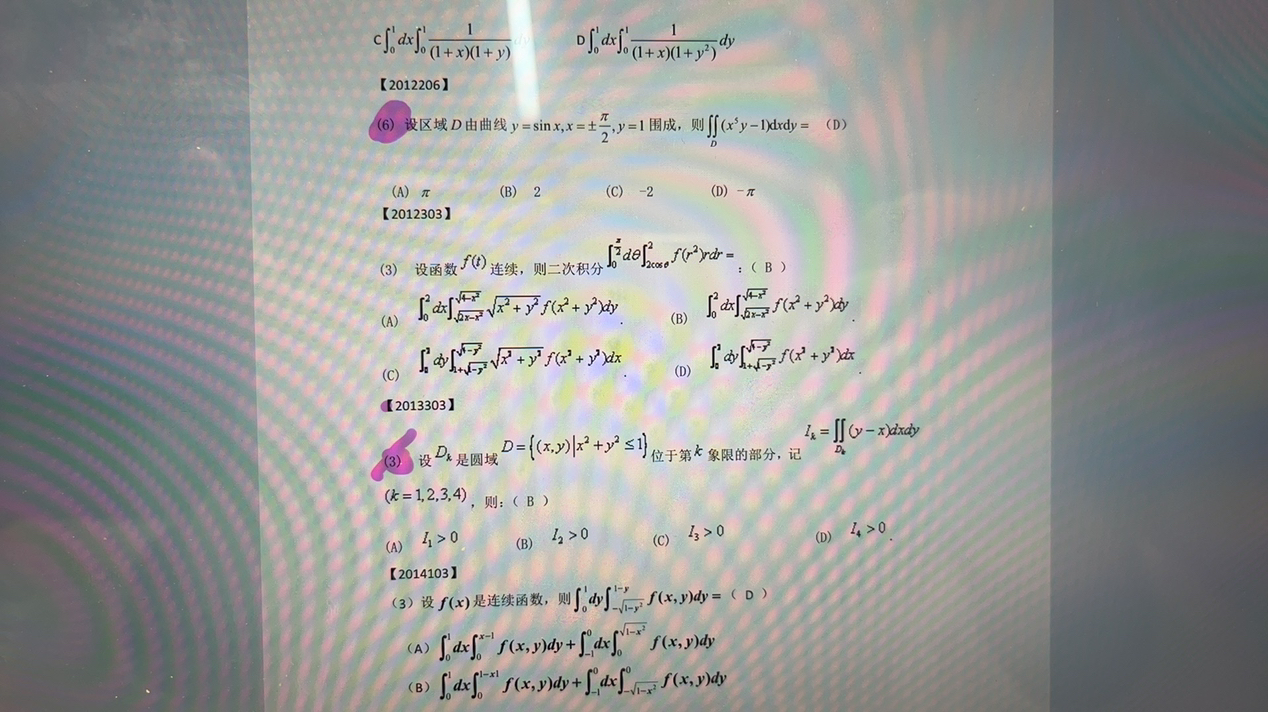 C∫₀¹dx∫₀¹ 1/((1+x)(1+y)) dy D∫₀¹dx∫₀¹ 1/((1+x)(1+y²)) dy
【2012206】
(6) 设区域 D 由曲线 y=sin x, x=±π/2, y=1 围成，则∬_D(x⁵y−1)dxdy= （D）
(A) π (B) 2 (C) -2 (D) -π
【2012303】
(3) 设函数 f(t) 连续，则二次积分 ∫₀^{π/2}dθ∫_{2cosθ}^{2} f(r²)rdr= :（ B ）
(A) ∫₀²dx∫_{√(2x−x²)}^{√(4−x²)} √(x²+y²) f(x²+y²)dy. (B) ∫₀²dx∫_{√(2x−x²)}^{√(4−x²)} f(x²+y²)dy.
(C) ∫₀²dy∫_{1+√(1−y²)}^{√(4−y²)} √(x²+y²) f(x²+y²)dx. (D) ∫₀²dy∫_{1+√(1−y²)}^{√(4−y²)} f(x²+y²)dx.
【2013303】
(3) 设 D_k 是圆域 D={(x,y)|x²+y²≤1} 位于第 k 象限的部分，记 I_k=∬_{D_k}(y−x)dxdy
(k=1,2,3,4)，则:（ B ）
(A) I₁>0 (B) I₂>0 (C) I₃>0 (D) I₄>0.
【2014103】
（3）设 f(x) 是连续函数，则∫₀¹dy∫_{−√(1−y²)}^{1−y} f(x,y)dy=（ D ）
（A）∫₀¹dx∫₀^{x−1} f(x,y)dy+∫_{−1}^{0}dx∫₀^{√(1−x²)} f(x,y)dy
（B）∫₀¹dx∫₀^{1−x1} f(x,y)dy+∫_{−1}^{0}dx∫_{−√(1−x²)}^{0} f(x,y)dy